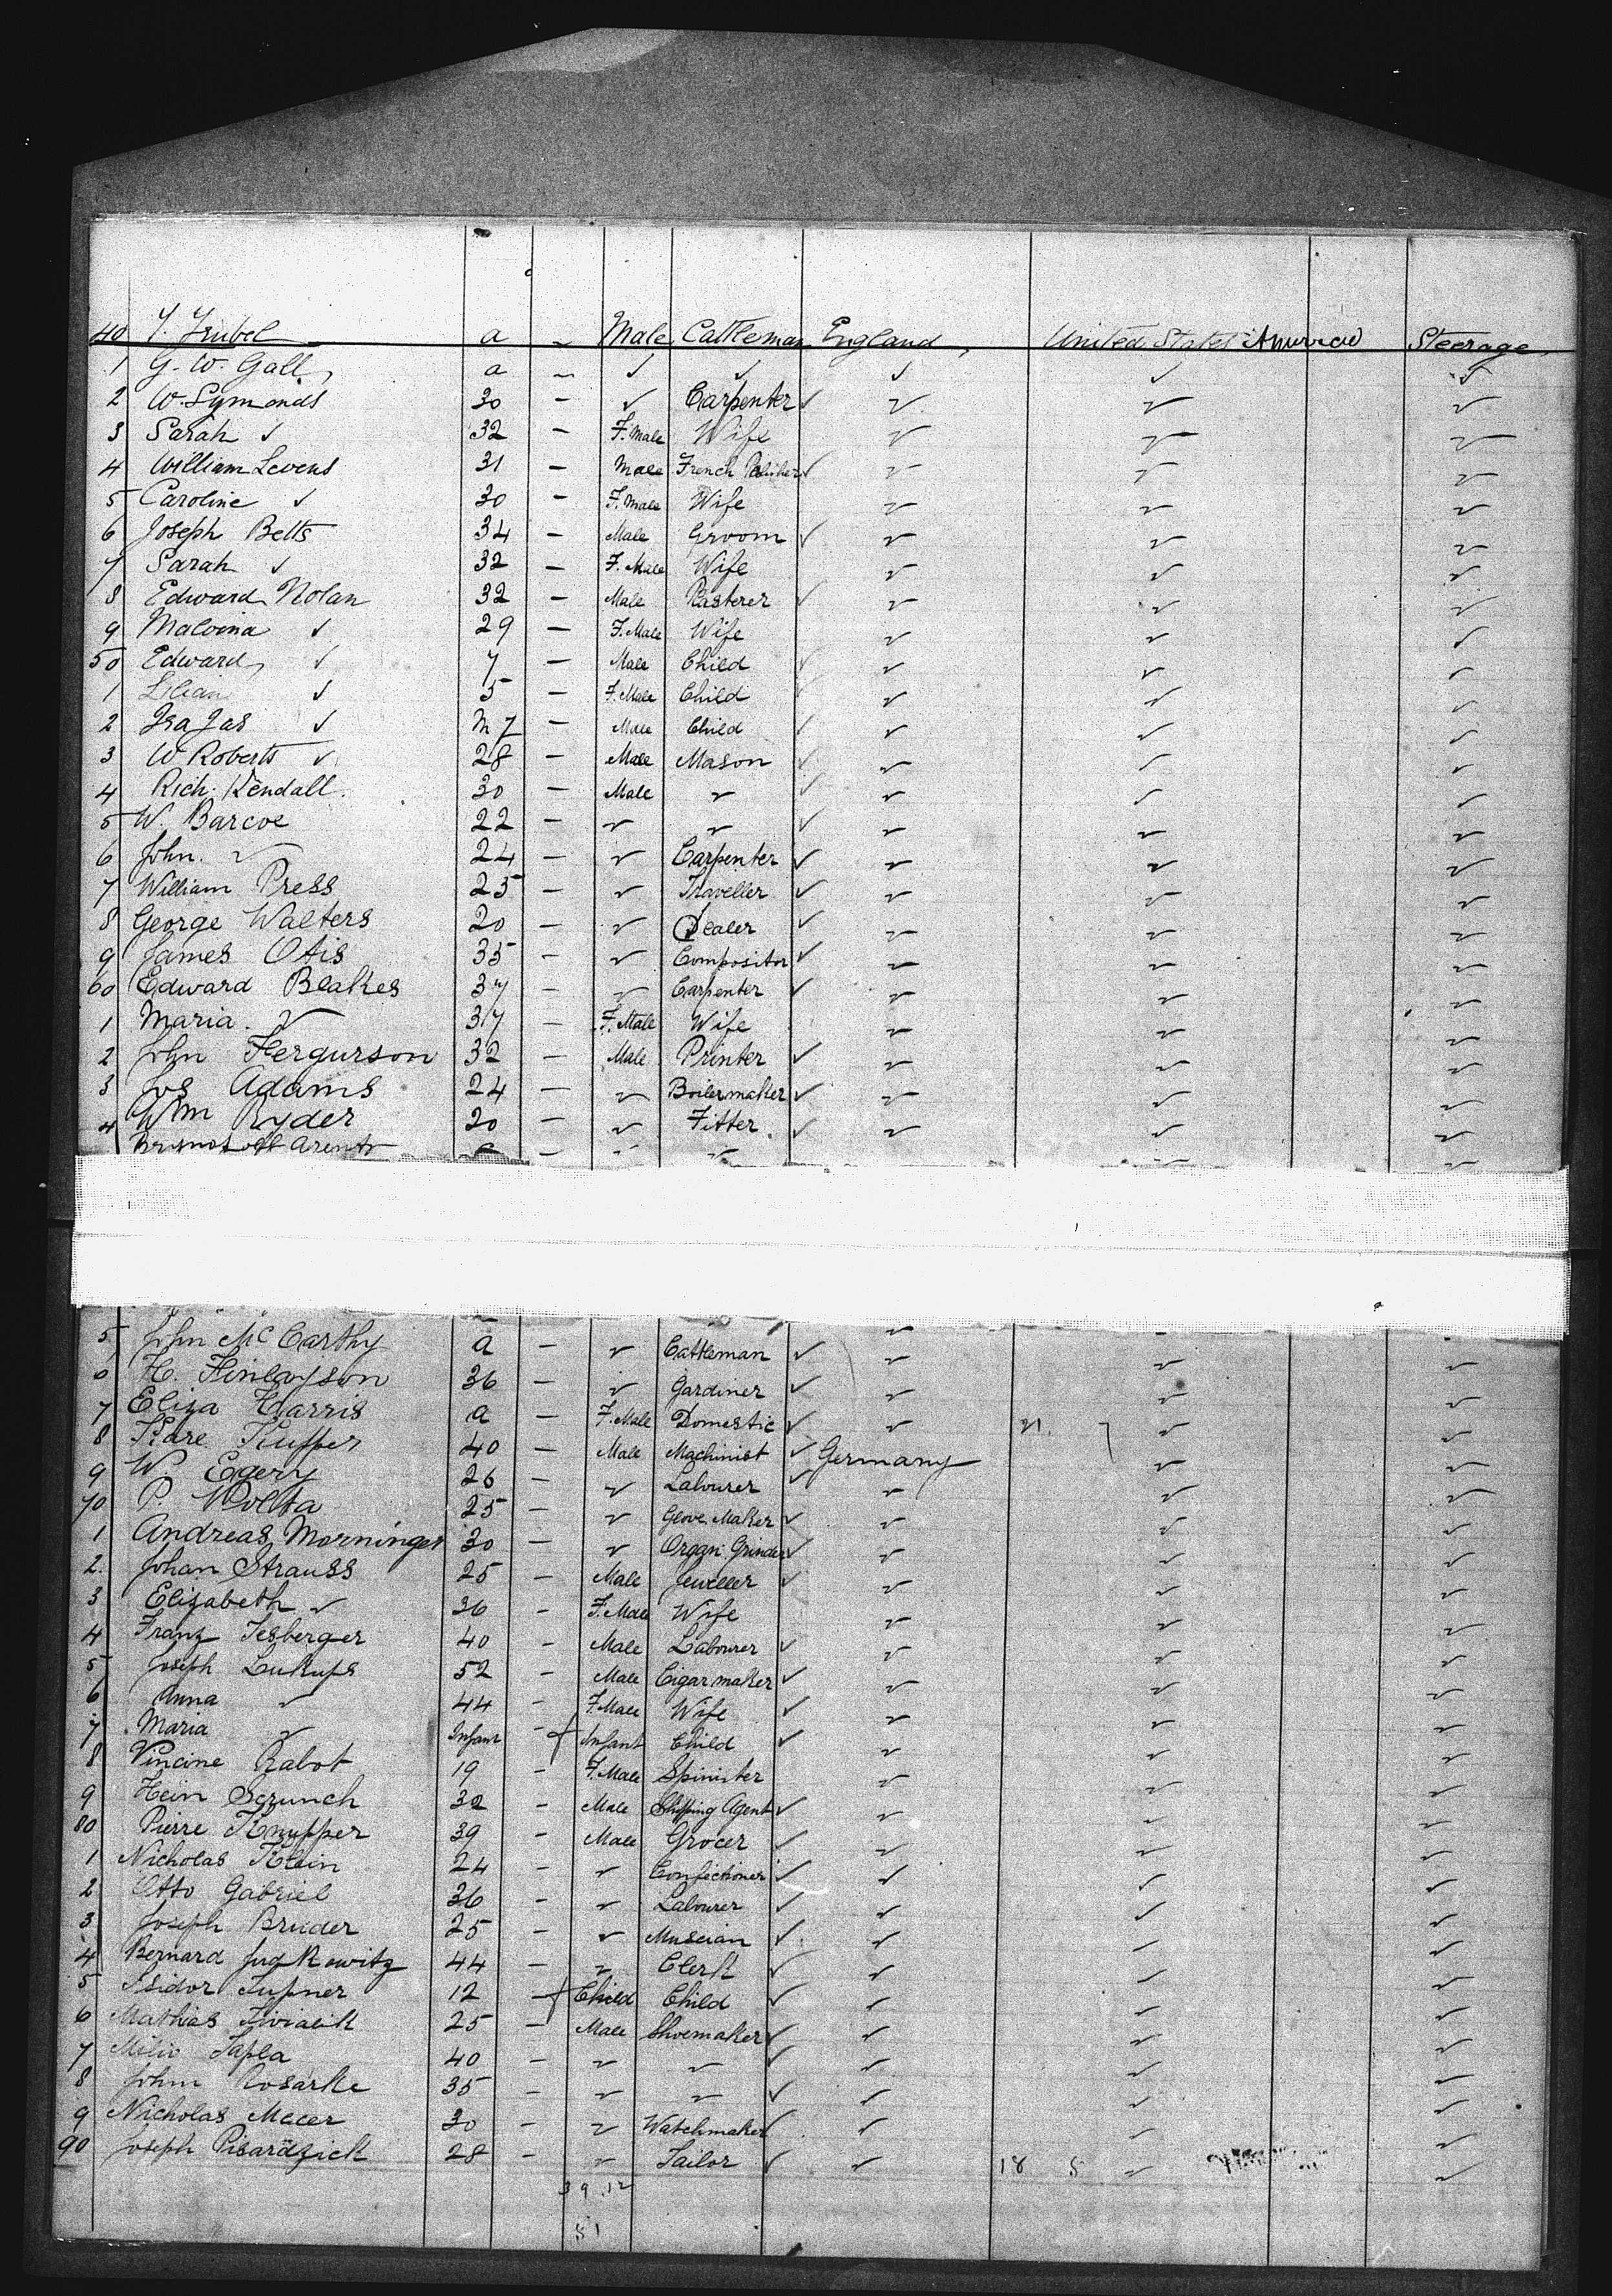 40 J. Zrubel a ~ Male Cattleman England United States America Steerage
1 G. W. Gall a ~ ✓ ✓ ✓ ✓ ✓
2 W. Symonds 30 – ✓ Carpenter ✓ ✓ ✓ ✓
3 Sarah ✓ 32 – F. Male Wife ✓ ✓ ✓
4 William Levens 31 – Male French Polisher ✓ ✓ ✓ ✓
5 Caroline ✓ 30 – F. Male Wife ✓ ✓ ✓
6 Joseph Betts 34 – Male Groom ✓ ✓ ✓ ✓
7 Sarah ✓ 32 – F. Male Wife ✓ ✓ ✓
8 Edward Nolan 32 – Male Plasterer ✓ ✓ ✓ ✓
9 Malvina ✓ 29 – F. Male Wife ✓ ✓ ✓
50 Edward ✓ 7 – Male Child ✓ ✓ ✓ ✓
1 Lilian ✓ 5 – F. Male Child ✓ ✓ ✓ ✓
2 Isa Jas ✓ M 7 – Male Child ✓ ✓ ✓ ✓
3 W Roberts ✓ 28 – Male Mason ✓ ✓ ✓ ✓
4 Rich. Kendall. 30 – Male ✓ ✓ ✓ ✓ ✓
5 W. Barcoe 22 – ✓ ✓ ✓ ✓ ✓ ✓
6 John. ✓ 24 – ✓ Carpenter ✓ ✓ ✓ ✓
7 William Press 25 – ✓ Traveller ✓ ✓ ✓ ✓
8 George Walters 20 – ✓ Dealer ✓ ✓ ✓ ✓
9 James Otis 35 – ✓ Compositor ✓ ✓ ✓ ✓
60 Edward Blakes 37 – ✓ Carpenter ✓ ✓ ✓ ✓
1 Maria. ✓ 37 – F. Male Wife ✓ ✓ ✓
2 John Fergurson 32 – Male Printer ✓ ✓ ✓ ✓
3 Jos Adams 24 – ✓ Boilermaker ✓ ✓ ✓ ✓
4 Wm Ryder 20 – ✓ Fitter. ✓ ✓ ✓ ✓
5 John McCarthy a – ✓ Cattleman ✓ ✓ ✓ ✓
6 H. Finlayson 36 – ✓ Gardiner ✓ ✓ ✓ ✓
7 Eliza Harris a – F. Male Domestic ✓ ✓ 21. 7 ✓ ✓
8 Kare Kuffer 40 – Male Machinist ✓ Germany ✓ ✓
9 W. Egery 26 – ✓ Labourer ✓ ✓ ✓ ✓
70 P. Wolta 25 – ✓ Glove Maker ✓ ✓ ✓ ✓
1 Andreas Morninger 30 – ✓ Organ Grinder ✓ ✓ ✓ ✓
2. Johan Strauss 25 – Male Jeweller ✓ ✓ ✓ ✓
3 Elizabeth ✓ 36 – F. Male Wife ✓ ✓ ✓
4 Franz Jesberger 40 – Male Labourer ✓ ✓ ✓ ✓
5 Joseph Lukups 52 – Male Cigar maker ✓ ✓ ✓ ✓
6 Anna ✓ 44 – F. Male Wife ✓ ✓ ✓ ✓
7 Maria ✓ Infant – Infant Child ✓ ✓ ✓ ✓
8 Vincine Rabot 19 – F. Male Spinister ✓ ✓ ✓
9 Hein Scrunch 32 – Male Shipping Agent ✓ ✓ ✓ ✓
80 Pierre Knupper 39 – Male Grocer ✓ ✓ ✓ ✓
1 Nicholas Klein 24 – ✓ Confectioner ✓ ✓ ✓ ✓
2 Otto Gabriel 36 – ✓ Labourer ✓ ✓ ✓ ✓
3 Joseph Bruder 25 – ✓ Muscian ✓ ✓ ✓ ✓
4 Bernard Judkowitz 44 – ✓ Clerk ✓ ✓ ✓ ✓
5 Isidor Lupner 12 – Child Child ✓ ✓ ✓ ✓
6 Mathias 25 – Male Shoemaker ✓ ✓ ✓ ✓
7 Sapla 40 – ✓ ✓ ✓ ✓ ✓ ✓
8 John Kosarke 35 – ✓ ✓ ✓ ✓ ✓ ✓
9 Nicholas Mecer 30 – ✓ Watchmaker ✓ ✓ ✓ ✓
90 Joseph 28 – ✓ Tailor ✓ ✓ 18 5 ✓ ✓
39 12
51